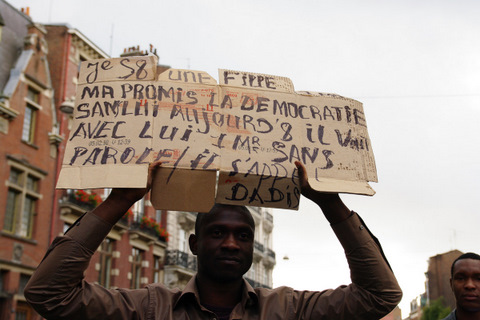 Je S8 UNE FIPPE
MA PROMIS LA DEMOCRATIE
SANLUI AUJOURD'8 IL VAUT
AVEC LUI 1 MR SANS
PAROLE/il S'APPE
DADIS